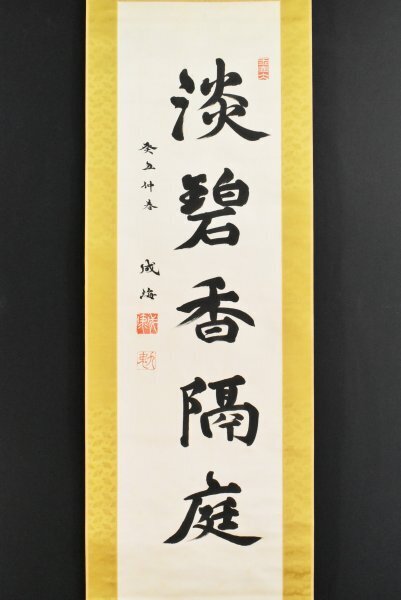 淡碧香隔庭
癸丑仲春 成海